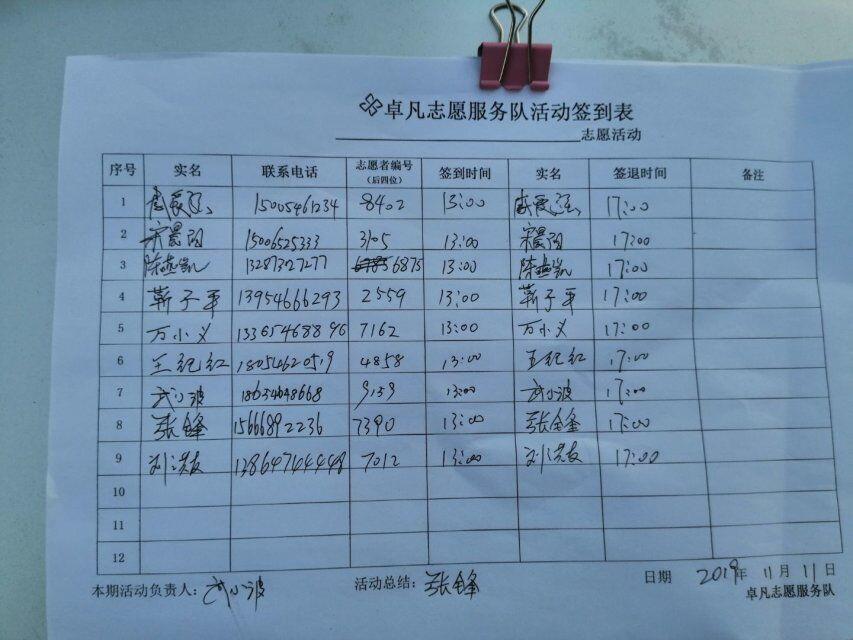 卓凡志愿服务队活动签到表
志愿活动
序号 实名 联系电话 志愿者编号(后四位) 签到时间 实名 签退时间 备注
1 15005461234 8402 13:00 17:00
2 宋晨阳 15006525333 3105 13:00 宋晨阳 17:00
3 陈燕凯 13287327277 6875 13:00 陈燕凯 17:00
4 靳子平 13954666293 2559 13:00 靳子平 17:00
5 万小义 13365468896 7162 13:00 万小义 17:00
6 王纪红 18054620519 4858 13:00 王纪红 17:00
7 武小波 18654648668 9159 13:00 武小波 17:00
8 张锋 15666892236 7390 13:00 张锋 17:00
9 13864764448 7012 13:00 17:00
10
11
12
本期活动负责人: 武小波 活动总结: 张锋 日期 2019年11月11日
卓凡志愿服务队